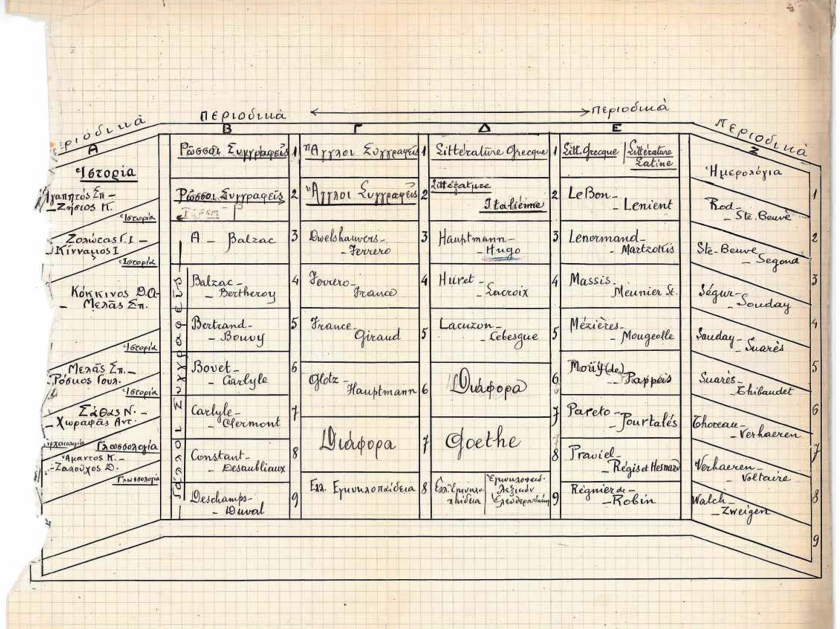 Περιοδικά
Περιοδικά
Περιοδικά
Περιοδικά
Α
Ἱστορία
Ἀγαπητὸς Σπ -
- Ζήσιος Κ.
Ἱστορία
Ζολώτας Γ. Ι -
Κίνναμος Ι
Ἱστορία
Κόκκινος Δ.Α-
Μελᾶς Σπ.
Ἱστορία
Μελᾶς Σπ. -
- Ρόσκος Γουλ.
Ἱστορία
Σάθας Ν -
- Χωραφᾶς Αντ.
Γλωσσολογία
Ἄμαντος Κ. -
- Ζαλούχος Δ.
Γλωσσολογία
Β
Ρῶσσοι Συγγραφεῖς 1
Ρῶσσοι Συγγραφεῖς 2
Γάλλοι Συγγραφεῖς
Α - Balzac 3
Balzac - 4
- Bertheroy
Bertrand - 5
- Bouvy
Bovet - 6
- Carlyle
Carlyle - 7
- Clermont
Constant - 8
- Desaubliaux
Deschamps - 9
- Duval
Γ
Ἄγγλοι Συγγραφεῖς 1
Ἄγγλοι Συγγραφεῖς 2
Dwelshauvers - 3
- Ferrero
Ferrero - 4
- France
France - 5
Giraud
Glotz - 6
Hauptmann
Διάφορα 7
Ελλ Εγκυκλοπαίδεια 8
Δ
Littérature Grecque 1
Littérature 2
Italienne
Hauptmann 3
- Hugo
Huret - 4
- Lacroix
Lacuzon - 5
- Lebesgue
Διάφορα 6
Goethe 7
Ελλ. Εγκυκλο-
παίδεια
Εγκυκλοπαιδ.
Λεξικὸν
Ἐλευθερουδάκη
9
Ε
Litt. Grecque
Littérature
Latine
LeBon -
- Lenient
Lenormand -
- Martzokis
Massis -
- Meunier St.
Mézières -
- Mougeolle
Moüy (de)
- Pappeis
Pareto -
- Pourtalés
Praviel -
- Régis et Hesnard
Régnier de -
- Robin
Ζ
Ἡμερολόγια 1
Rod - 2
- Ste. Beuve
Ste. Beuve 3
- Segond
Ségur - 4
- Souday
Souday - 5
- Suarès
Suarès - 6
- Thibaudet
Thoreau - 7
- Verhaeren
Verhaeren - 8
- Voltaire
Walch - 9
- Zweigen